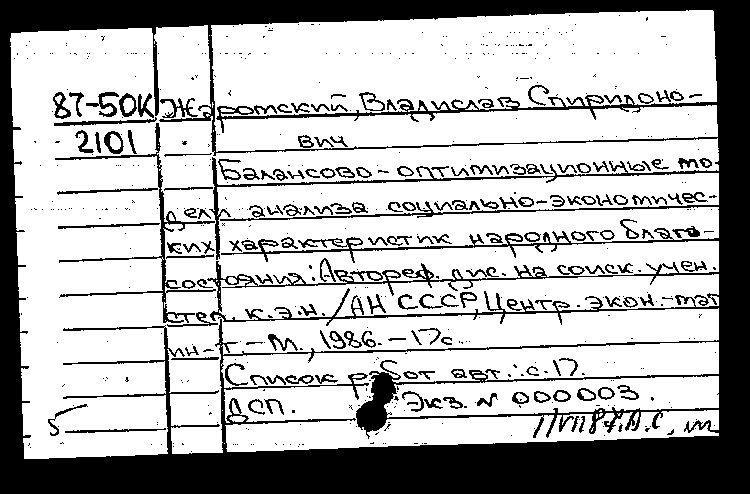 87-50К Жаромский, Владислав Спиридоно-
2101 вич
Балансово-оптимизационные мо-
дели анализа социально-экономичес-
ких характеристик народного благо-
состояния: Автореф. дис. на соиск. учен.
степ. к.э.н. / АН СССР, Центр. экон.-мат
ин-т. - М., 1986. - 17с.
Список работ авт.: с. 17.
ДСП. Экз. N 000003.
5 11/VII 87. А.С.